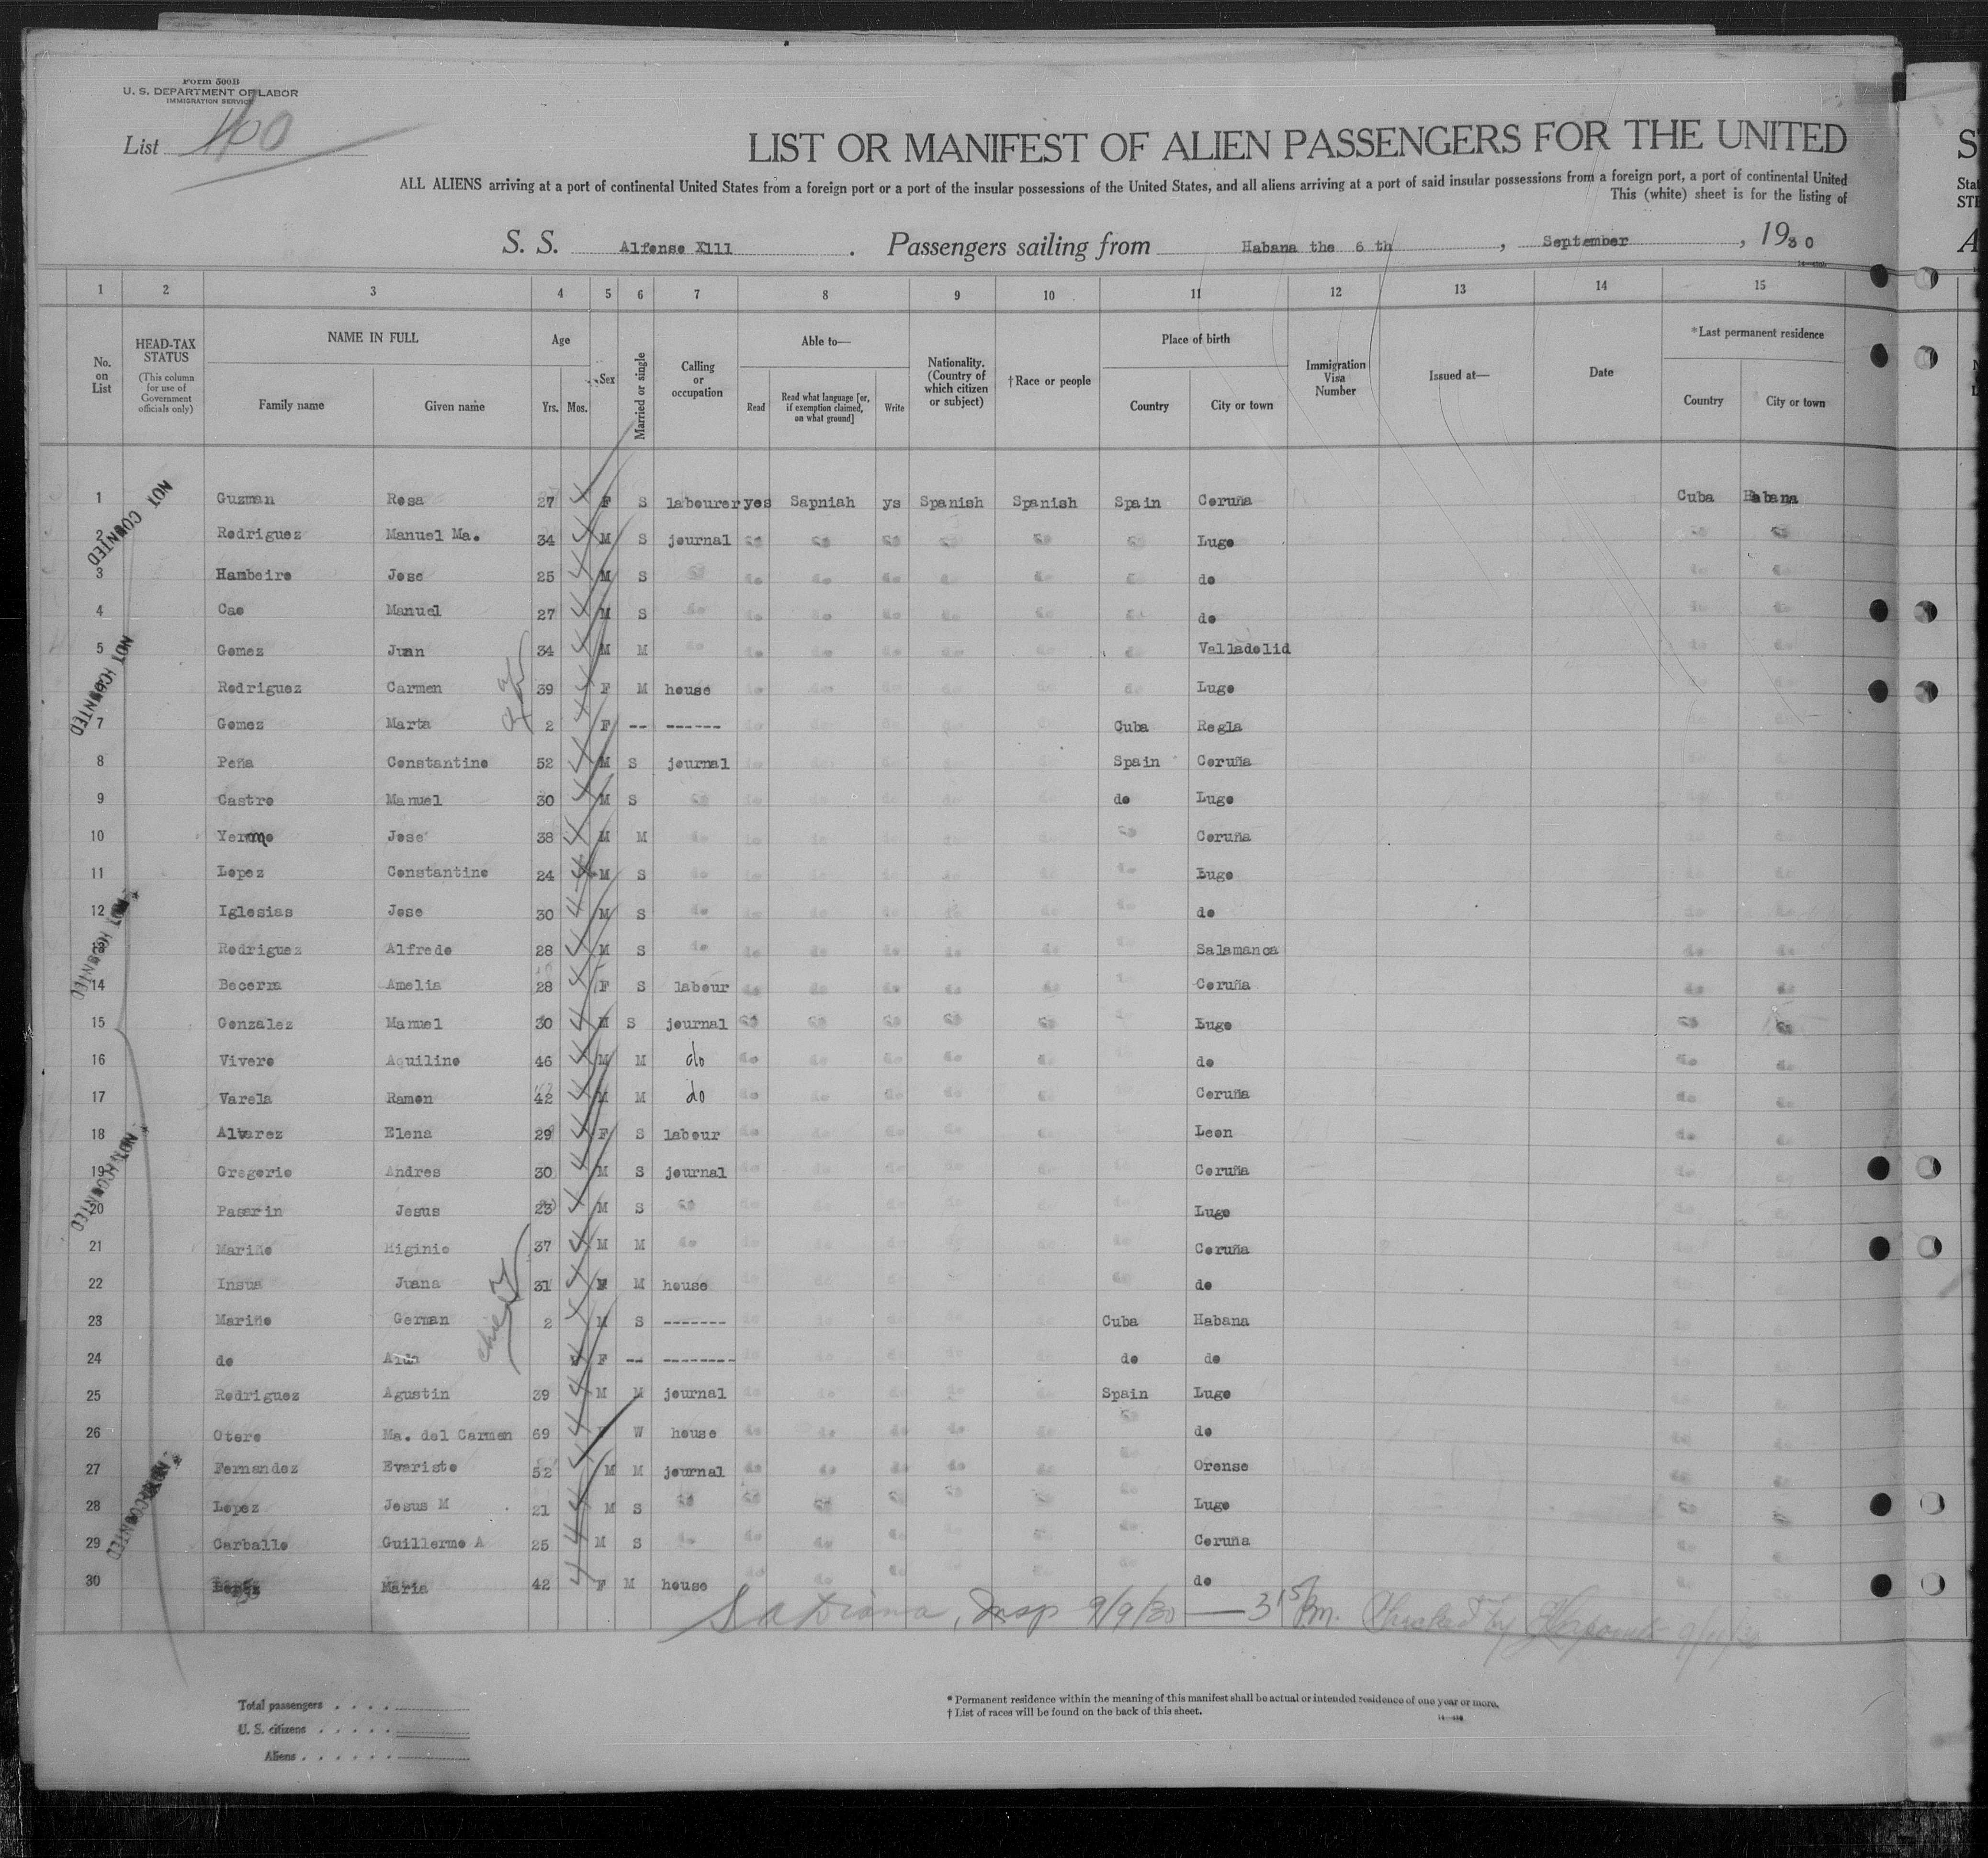 Form 500B
U. S. DEPARTMENT OF LABOR
IMMIGRATION SERVICE
List 160
LIST OR MANIFEST OF ALIEN PASSENGERS FOR THE UNITED
ALL ALIENS arriving at a port of continental United States from a foreign port or a port of the insular possessions of the United States, and all aliens arriving at a port of said insular possessions from a foreign port, a port of continental United
This (white) sheet is for the listing of
S. S. Alfonso Xlll . Passengers sailing from Habana the 6 th , September , 1930
1 2 3 4 5 6 7 8 9 10 11 12 13 14 15
No. on List HEAD-TAX STATUS (This column for use of Government officials only) NAME IN FULL Family name Given name Age Yrs. Mos. Sex Married or single Calling or occupation Able to— Read Read what language [or, if exemption claimed, on what ground] Write Nationality. (Country of which citizen or subject) †Race or people Place of birth Country City or town Immigration Visa Number Issued at— Date *Last permanent residence Country City or town
1 Guzman Rosa 27 F S labourer yes Sapniah ys Spanish Spanish Spain Coruña Cuba Habana
2 Rodriguez Manuel Ma. 34 M S journal do do do do do do Lugo do do
3 Hambeiro Jose 25 M S do do do do do do do do do do
4 Cao Manuel 27 M S do do do do do do do do do do
5 Gomez Juan 34 M M do do do do do do do Valladolid do do
Rodriguez Carmen 39 F M house do do do do do do Lugo do do
7 Gomez Marta 2 F -- ------ do do do do do Cuba Regla do do
8 Peña Constantino 52 M S journal do do do do do Spain Coruña do do
9 Castro Manuel 30 M S do do do do do do do Lugo do do
10 Yermo Jose 38 M M do do do do do do do Coruña do do
11 Lopez Constantino 24 M S do do do do do do do Lugo do do
12 Iglesias Jose 30 M S do do do do do do do do do do
13 Rodriguez Alfredo 28 M S do do do do do do do Salamanca do do
14 Becerra Amelia 28 F S labour do do do do do do Coruña do do
15 Gonzalez Manuel 30 M S journal do do do do do do Lugo do do
16 Vivero Aquilino 46 M M do do do do do do do do do do
17 Varela Ramon 42 M M do do do do do do do Coruña do do
18 Alvarez Elena 29 F S labour do do do do do do Leon do do
19 Gregorio Andres 30 M S journal do do do do do do Coruña do do
20 Pasarin Jesus 23 M S do do do do do do do Lugo do do
21 Mariño Higinio 37 M M do do do do do do do Coruña do do
22 Insua Juana 31 F M house do do do do do do do do do
23 Mariño German 2 M S ------- do do do do do Cuba Habana do do
24 do Aida F -- -------- do do do do do do do do do
25 Rodriguez Agustin 39 M M journal do do do do do Spain Lugo do do
26 Otero Ma. del Carmen 69 W house do do do do do do do do do
27 Fernandez Evaristo 52 M M journal do do do do do do Orense do do
28 Lopez Jesus M 21 M S do do do do do do do Lugo do do
29 Carballo Guillermo A 25 M S do do do do do do do Coruna do do
30 Maria 42 F M house do do do do do do do do do
NOT COUNTED
NOT COUNTED
NOT COUNTED
NOT COUNTED
NOT COUNTED
Insp 9/9/30 — 3 15 Pm. Checked by
Total passengers
U. S. citizens
Aliens
* Permanent residence within the meaning of this manifest shall be actual or intended residence of one year or more.
† List of races will be found on the back of this sheet.